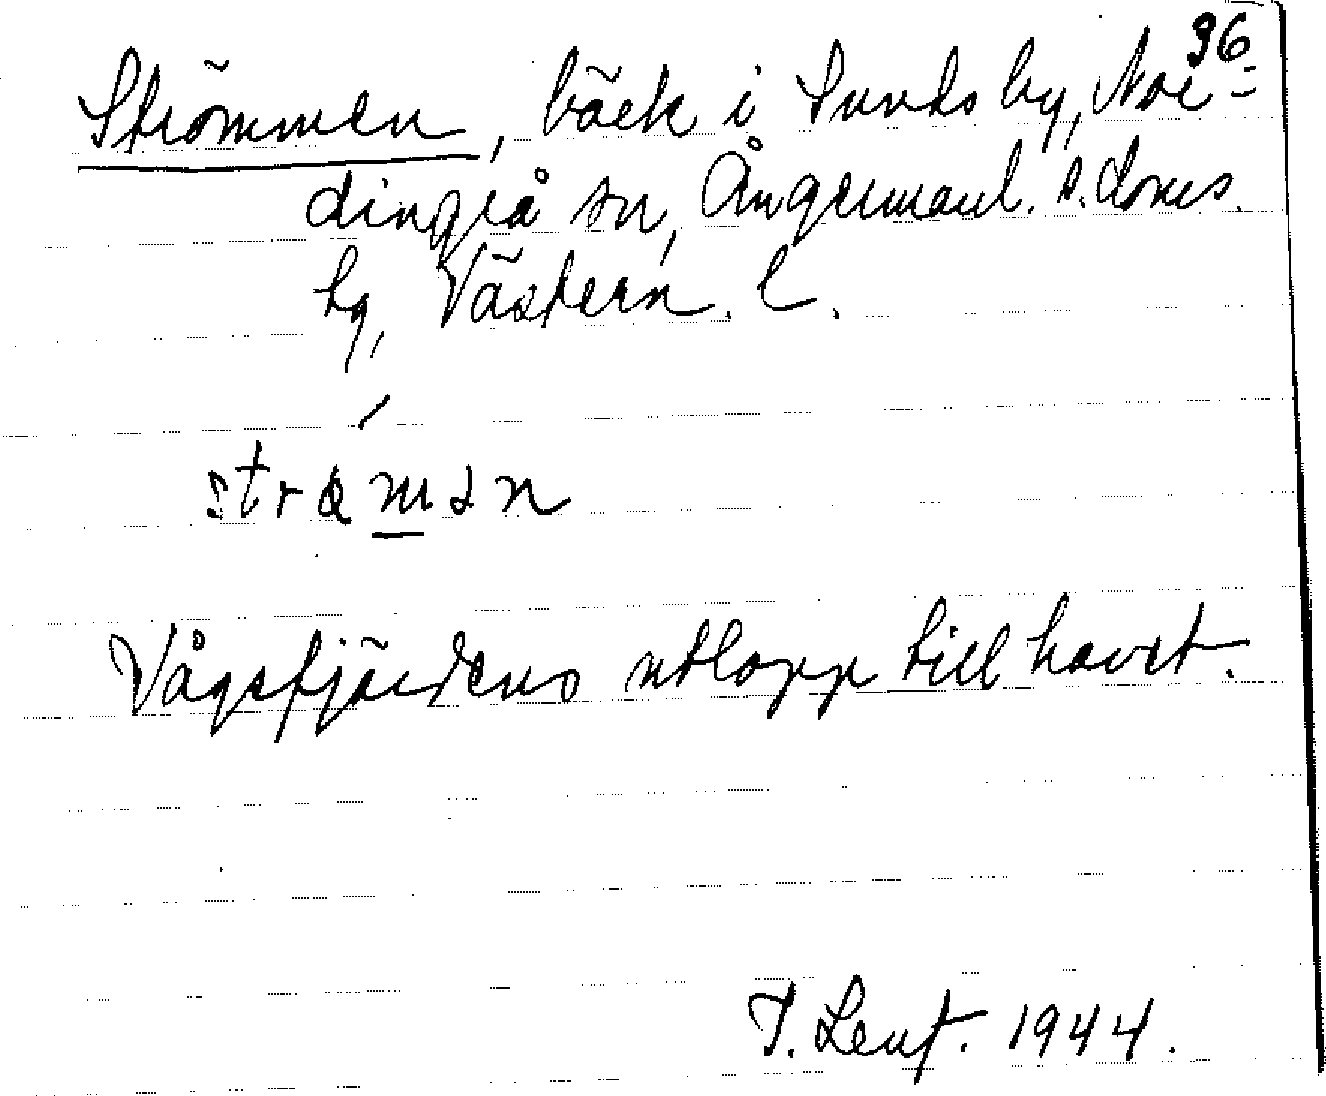 36
Strömmen, bäck i Sunds by, Nor-
dingrå sn, Ångermanl. s. doms.
hg, Västern. l.
strømən
Vågsfjärdens utlopp till havet.
1944.